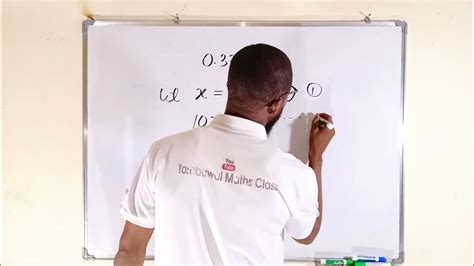 0.3
let x = → ①
10
You
Tube
Tambuwal Maths Class